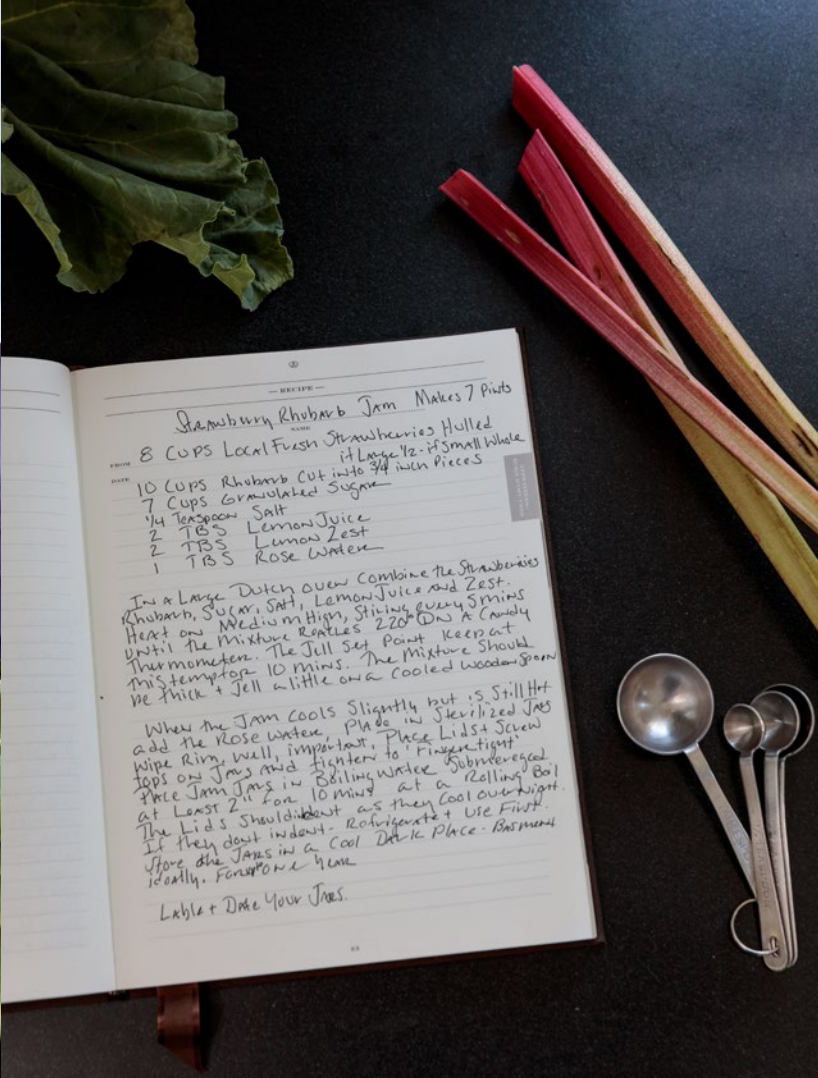 RECIPE
Strawberry Rhubarb Jam Makes 7 Pints
NAME
8 Cups Local Fresh Strawberries Hulled
FROM
if Large 1/2 - if Small Whole
DATE
10 Cups Rhubarb Cut into 3/4 inch Pieces
7 Cups Granulated Sugar
1/4 Teaspoon Salt
2 TBS Lemon Juice
2 TBS Lemon Zest
1 TBS Rose Water
In a Large Dutch oven Combine the Strawberries
Rhubarb, Sugar, Salt, Lemon Juice and Zest.
Heat on Medium High, Stiring every 5 mins
until the Mixture Reaches 220° On A Candy
Thermometer. The Jell Set Point keep at
this temp for 10 mins. The Mixture Should
be thick + Jell a little on a Cooled wooden Spoon
When the Jam Cools Slightly but is Still Hot
add the Rose Water, Place in Sterilized Jars
wipe Rim, well, important, Place Lids + Screw
tops on Jars and tighten to "Finger tight"
Place Jam Jars in Boiling Water Submereged
at Least 2" for 10 mins at a Rolling Boil
The Lids Should indent as they Cool overnight.
If they dont indent - Refrigerate + use First.
Store the Jars in a Cool Dark Place - Basment
ideally. For up to one year
Lable + Date Your Jars.